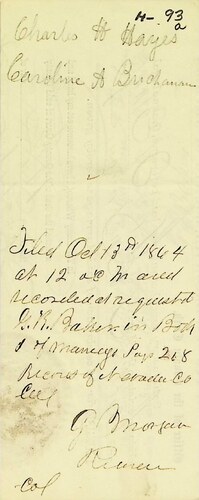 H- 93
a
Charles H Hayes
Caroline A Buchanan
Filed Oct 13th 1864
at 12 oC M and
recorded at request of
G. R. Baker in Book
1 of Marriage Page 268
Records of Nevada Co
Cal
Morgan
Col